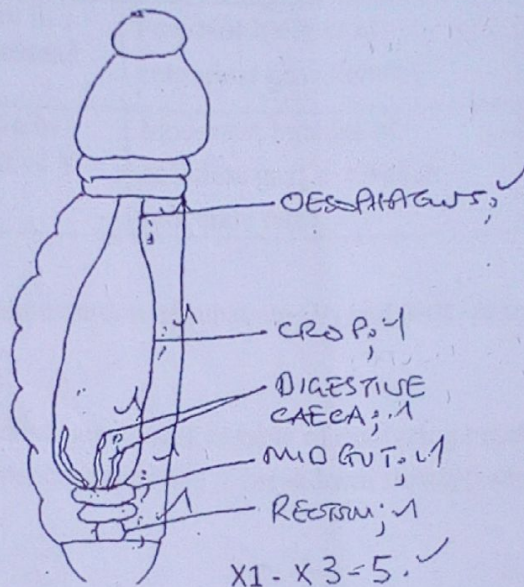 OESOPHAGUS;
CROP;
DIGESTIVE
CAECA;
MIDGUT;
RECTUM;
X1-X3=5.